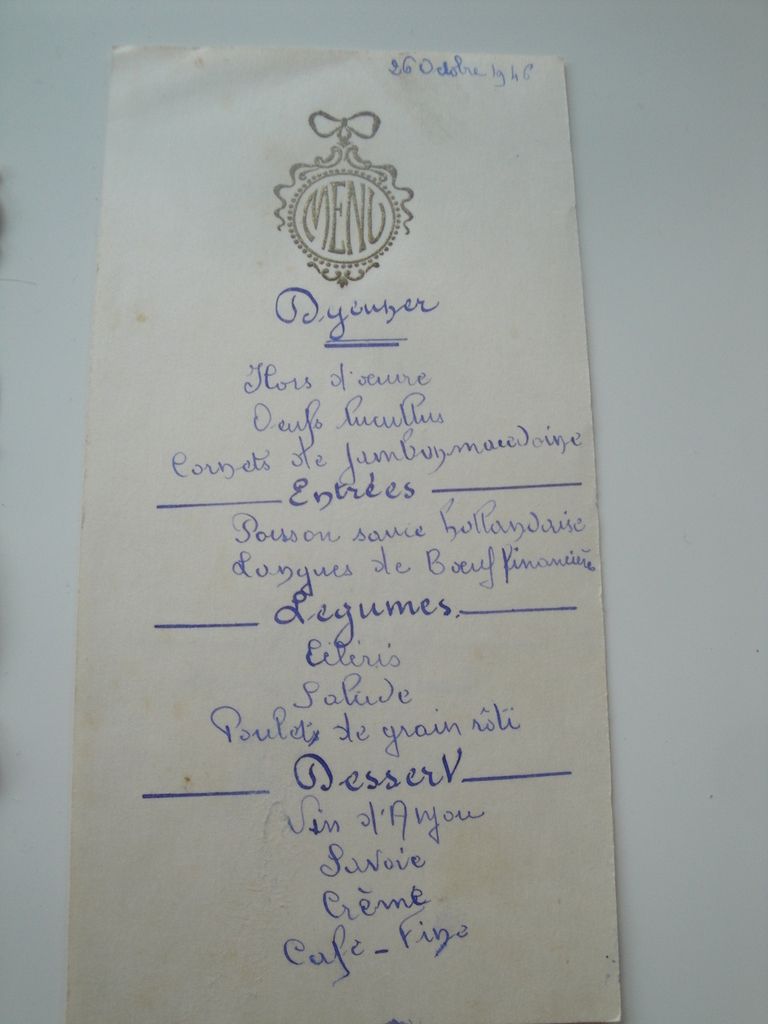 26 Octobre 1946
MENU
Dyeuner
Hors d'œuvre
Oeufs lucullus
Cornets de jambon macedoine
Entrées
Poisson sauce hollandaise
Langues de Bœuf financière
Legumes
Céleris
Salade
Poulets de grain rôti
Dessert
Vin d'Anjou
Savoie
Crème
Café - Fine